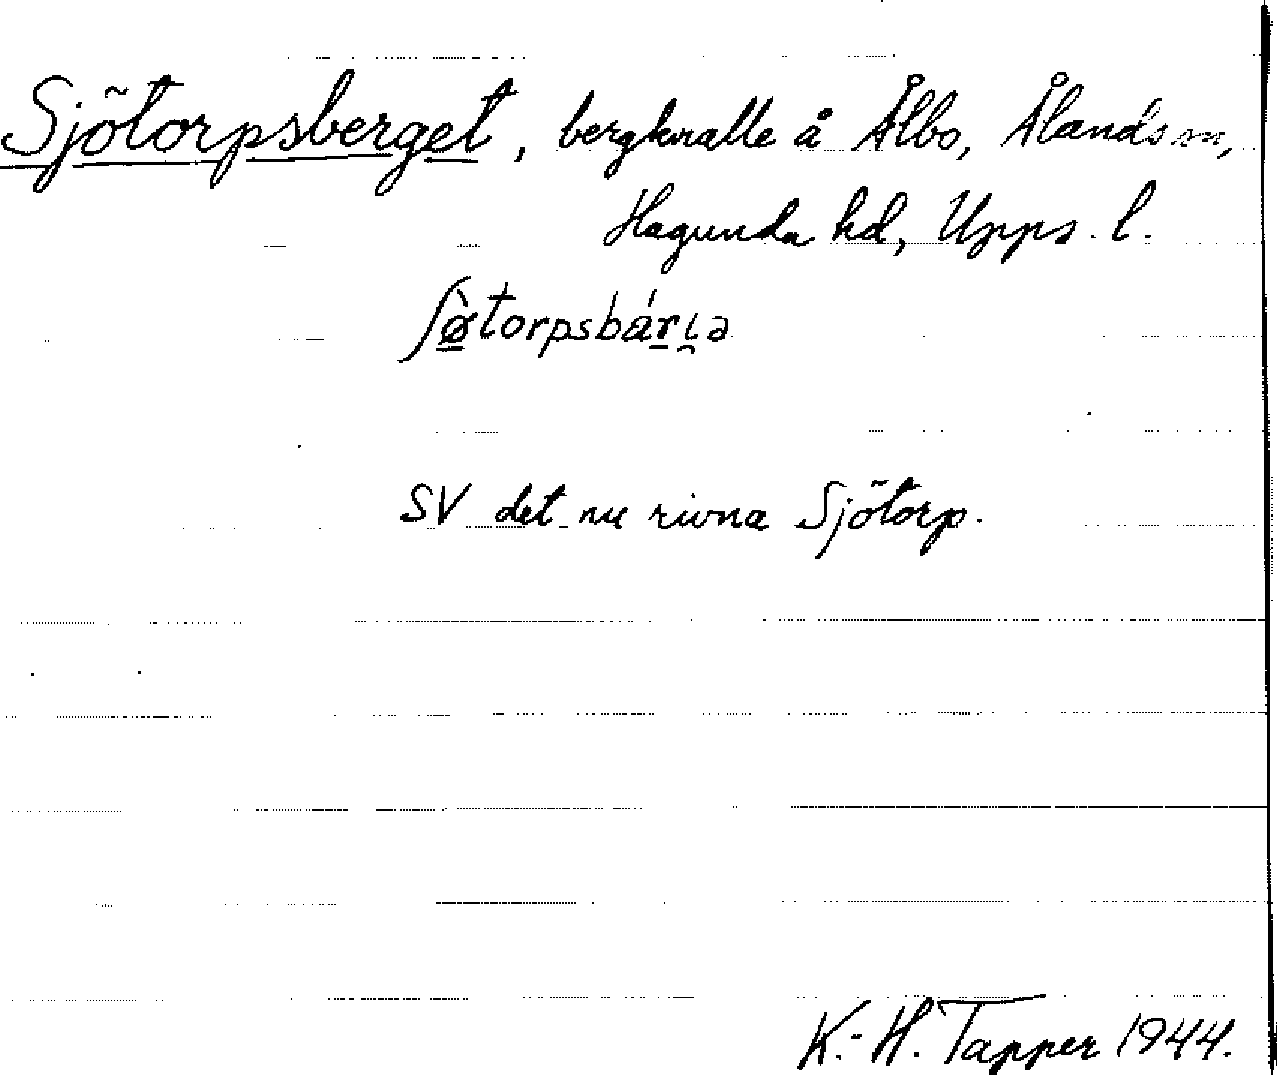 Sjötorpsberget, bergknalle å Ålbo, Ålands sn,
Hagunda hd, Upps. l.
ʃø̠̀torpsbá̠ri̯ə
SV det nu rivna Sjötorp.
K.-H. Tapper 1944.